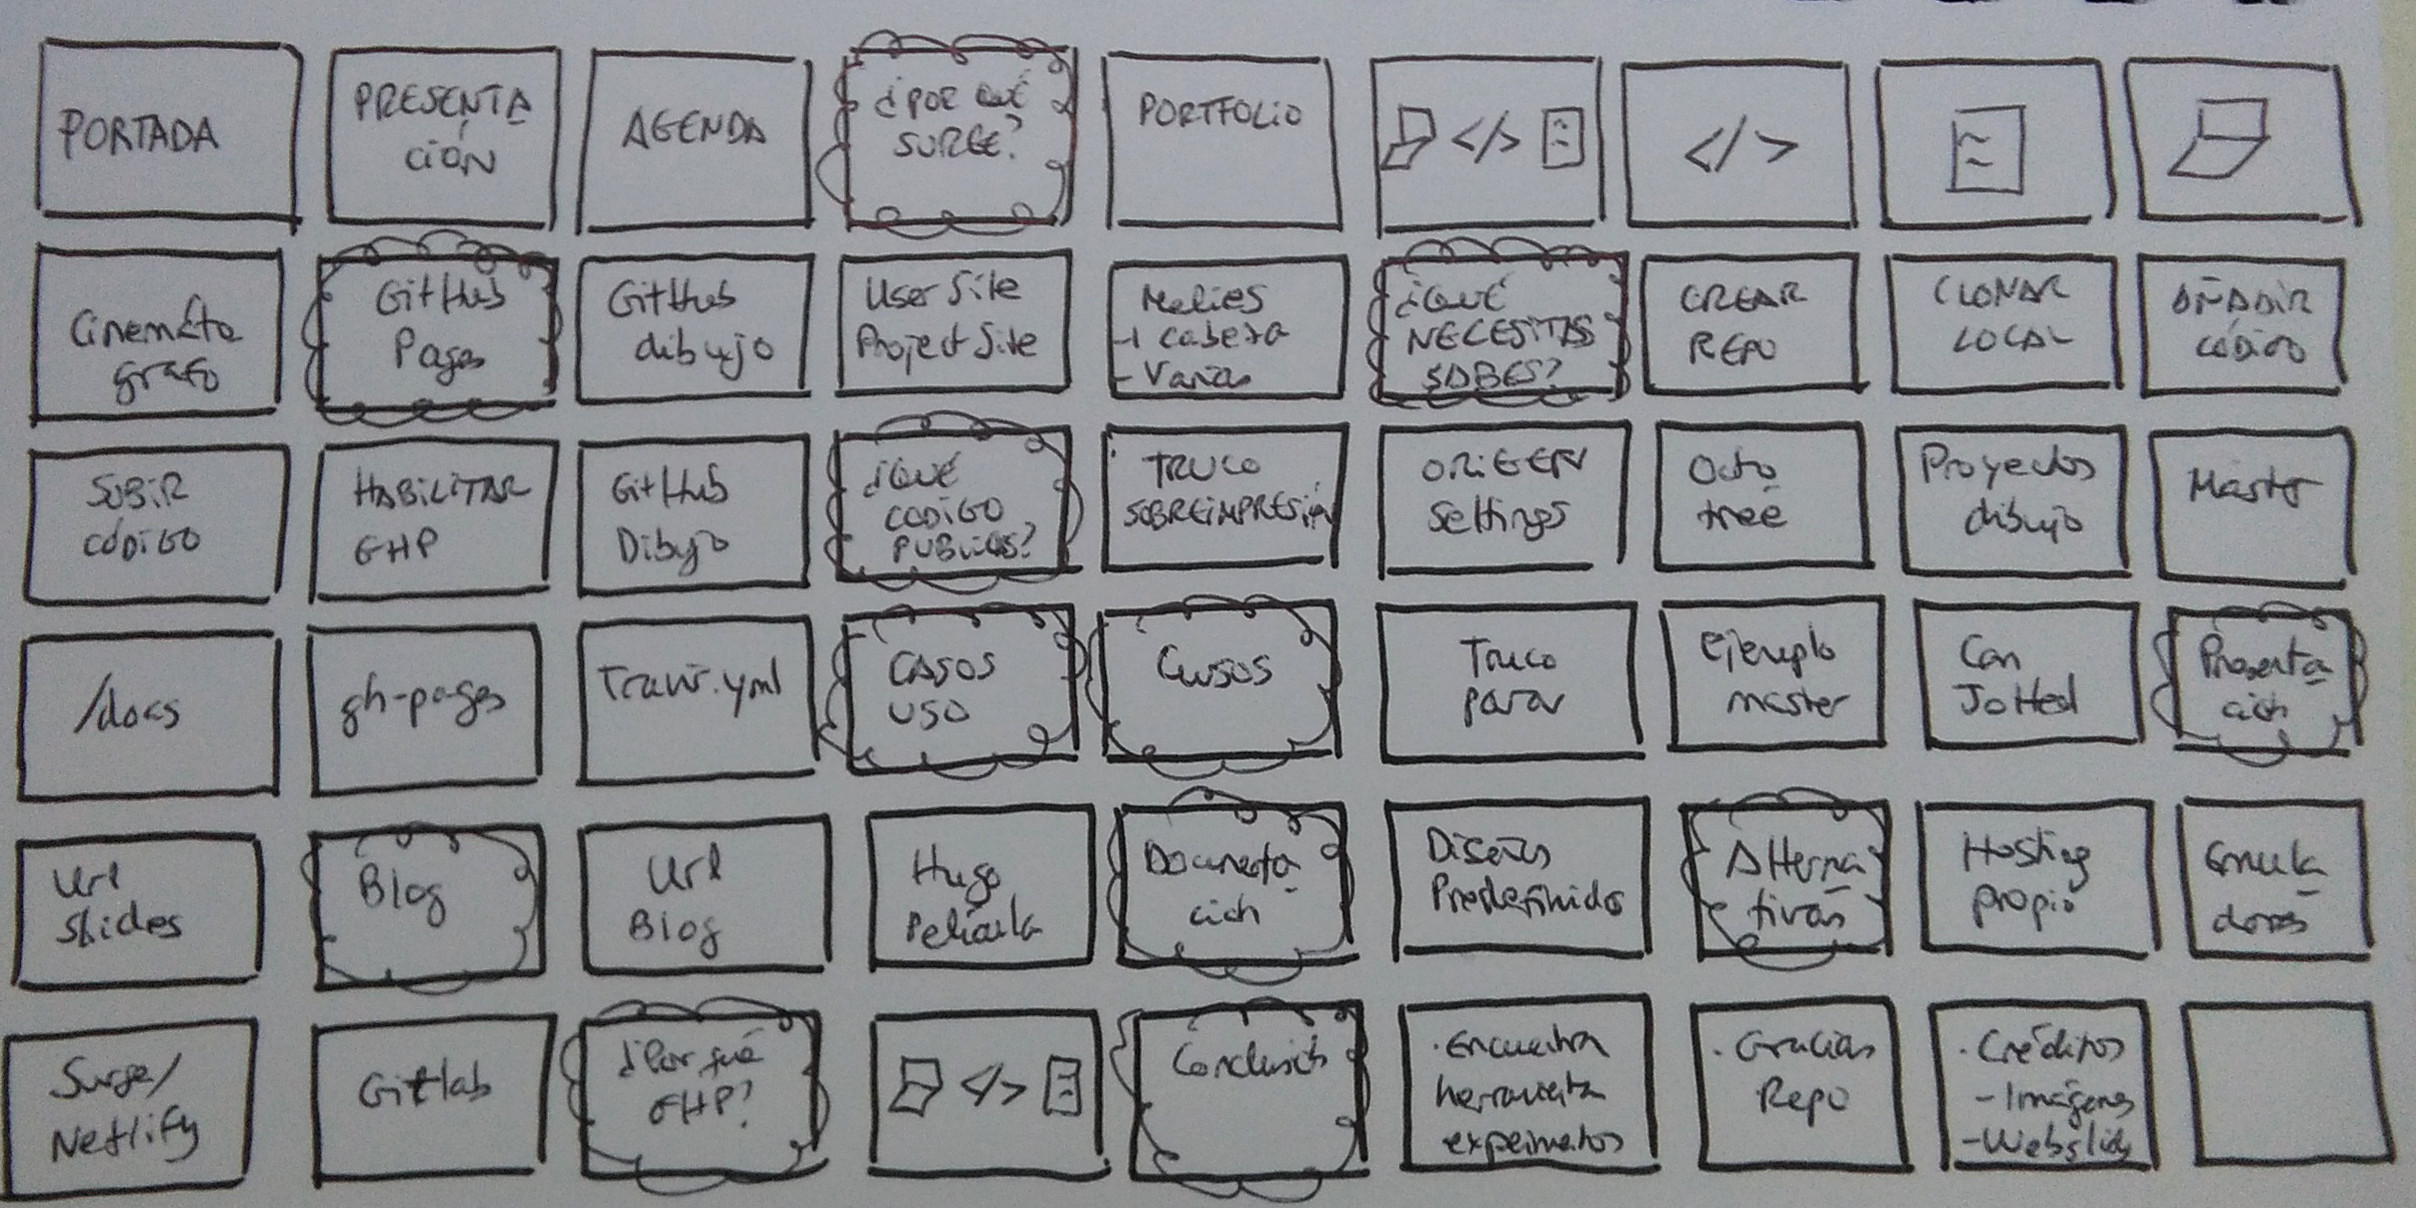 PORTADA
PRESENTA
CIÓN
AGENDA
¿POR QUÉ
SURGE?
PORTFOLIO
</>
</>
Cinemato
grafo
GitHub
Pages
GitHub
dibujo
User Site
Project Site
Melies
-1 cabeza
- Varias
¿QUÉ
NECESITAS
SABES?
CREAR
REPO
CLONAR
LOCAL
AÑADIR
CÓDIGO
SUBIR
CÓDIGO
HABILITAR
GHP
GitHub
Dibujo
¿QUÉ
CODIGO
PUBLICAS?
TRUCO
SOBREIMPRESIÓN
ORIGEN
Settings
Octo
tree
Proyectos
dibujo
Master
/docs
gh-pages
Travis.yml
CASOS
USO
Cursos
Truco
parar
Ejemplo
master
Con
Jotted
Presenta
ción
Url
Slides
Blog
Url
Blog
Hugo
Película
Documenta
ción
Diseños
Predefinidos
Alterna
tivas
Hosting
propio
Emula
dores
Surge/
Netlify
Gitlab
¿Por qué
GHP?
</>
Conclusión
· Encuentra
herramienta
experimentos
· Gracias
Repo
· Créditos
- Imágenes
- Webslides